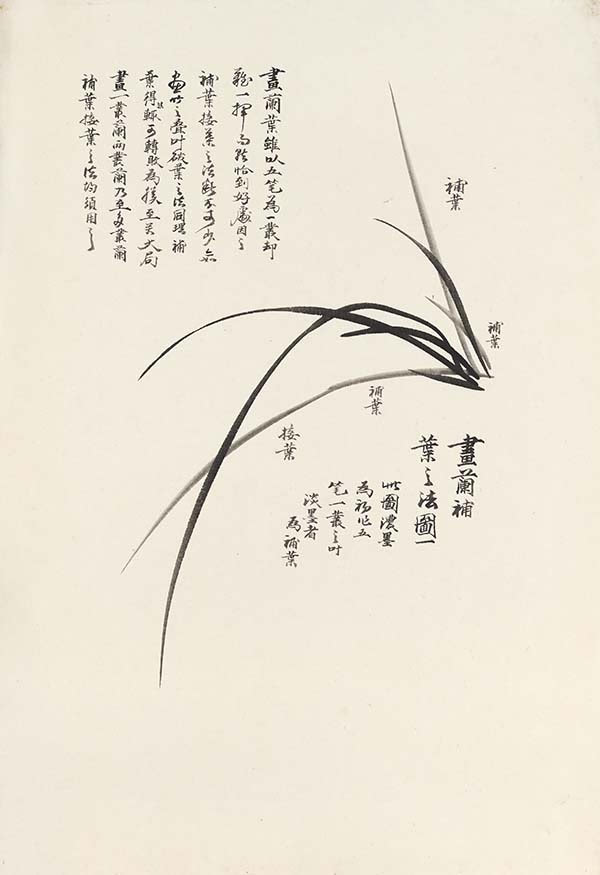 畫蘭葉雖以五笔為一叢却
難一揮而能恰到好處因之
補葉接葉之法斷不可少
画竹之叠叶破葉之法同增補
葉得輒可轉敗為勝至若大局
畫一叢蘭兩叢蘭乃至多叢蘭
補葉接葉之法均須用之
補葉
補葉
補葉
接葉
畫蘭補
葉之法圖一
此圖濃墨
為初作五
笔一叢之叶
淡墨者
為補葉